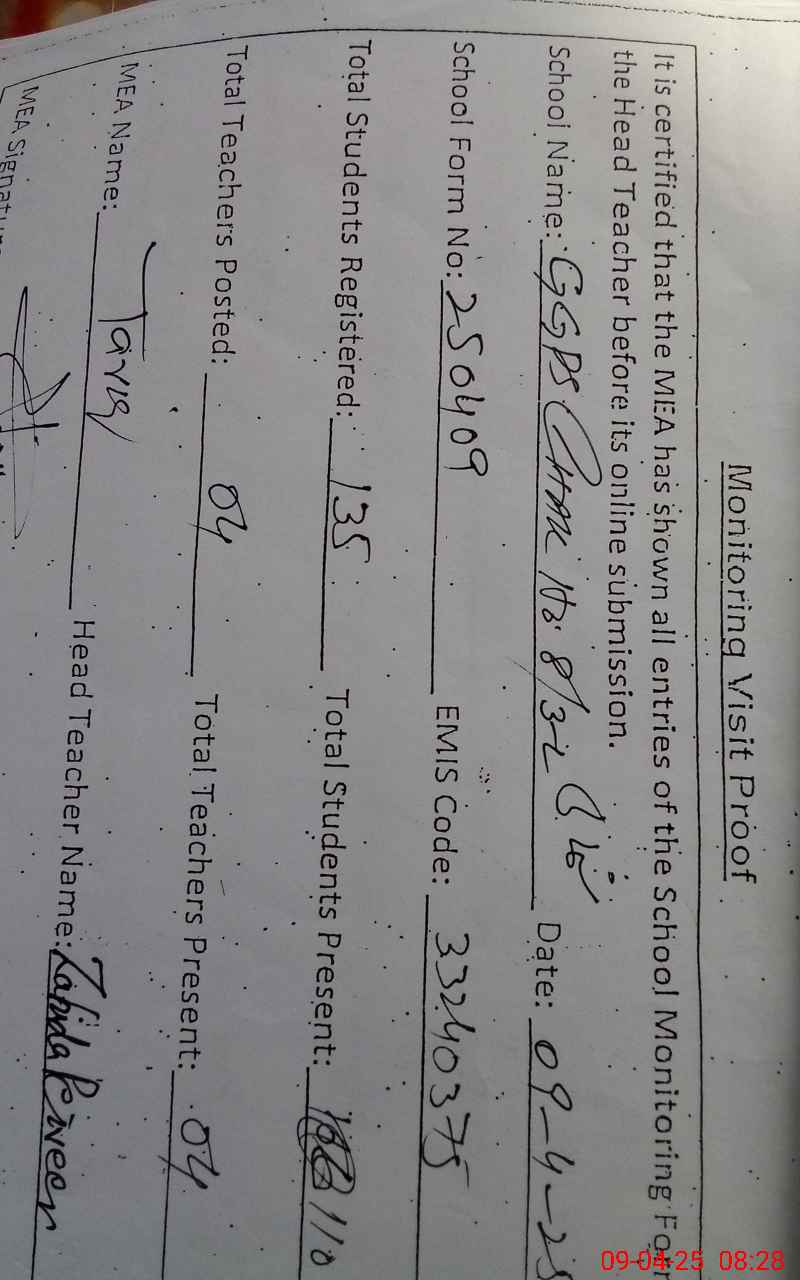 Monitoring Visit Proof
It is certified that the MEA has shown all entries of the School Monitoring For
the Head Teacher before its online submission.
School Name: GGPS Chak No. 8/32 Date: 09-4-25
School Form No: 250409 EMIS Code: 33240375
Total Students Registered: 135 Total Students Present: 110
Total Teachers Posted: 04 Total Teachers Present: 04
MEA Name: Tariq Head Teacher Name: Zahida Perveen
MEA Signatur
09-04-25 08:28